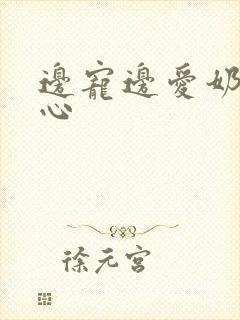 邊寵邊愛奶
心
徐元宮